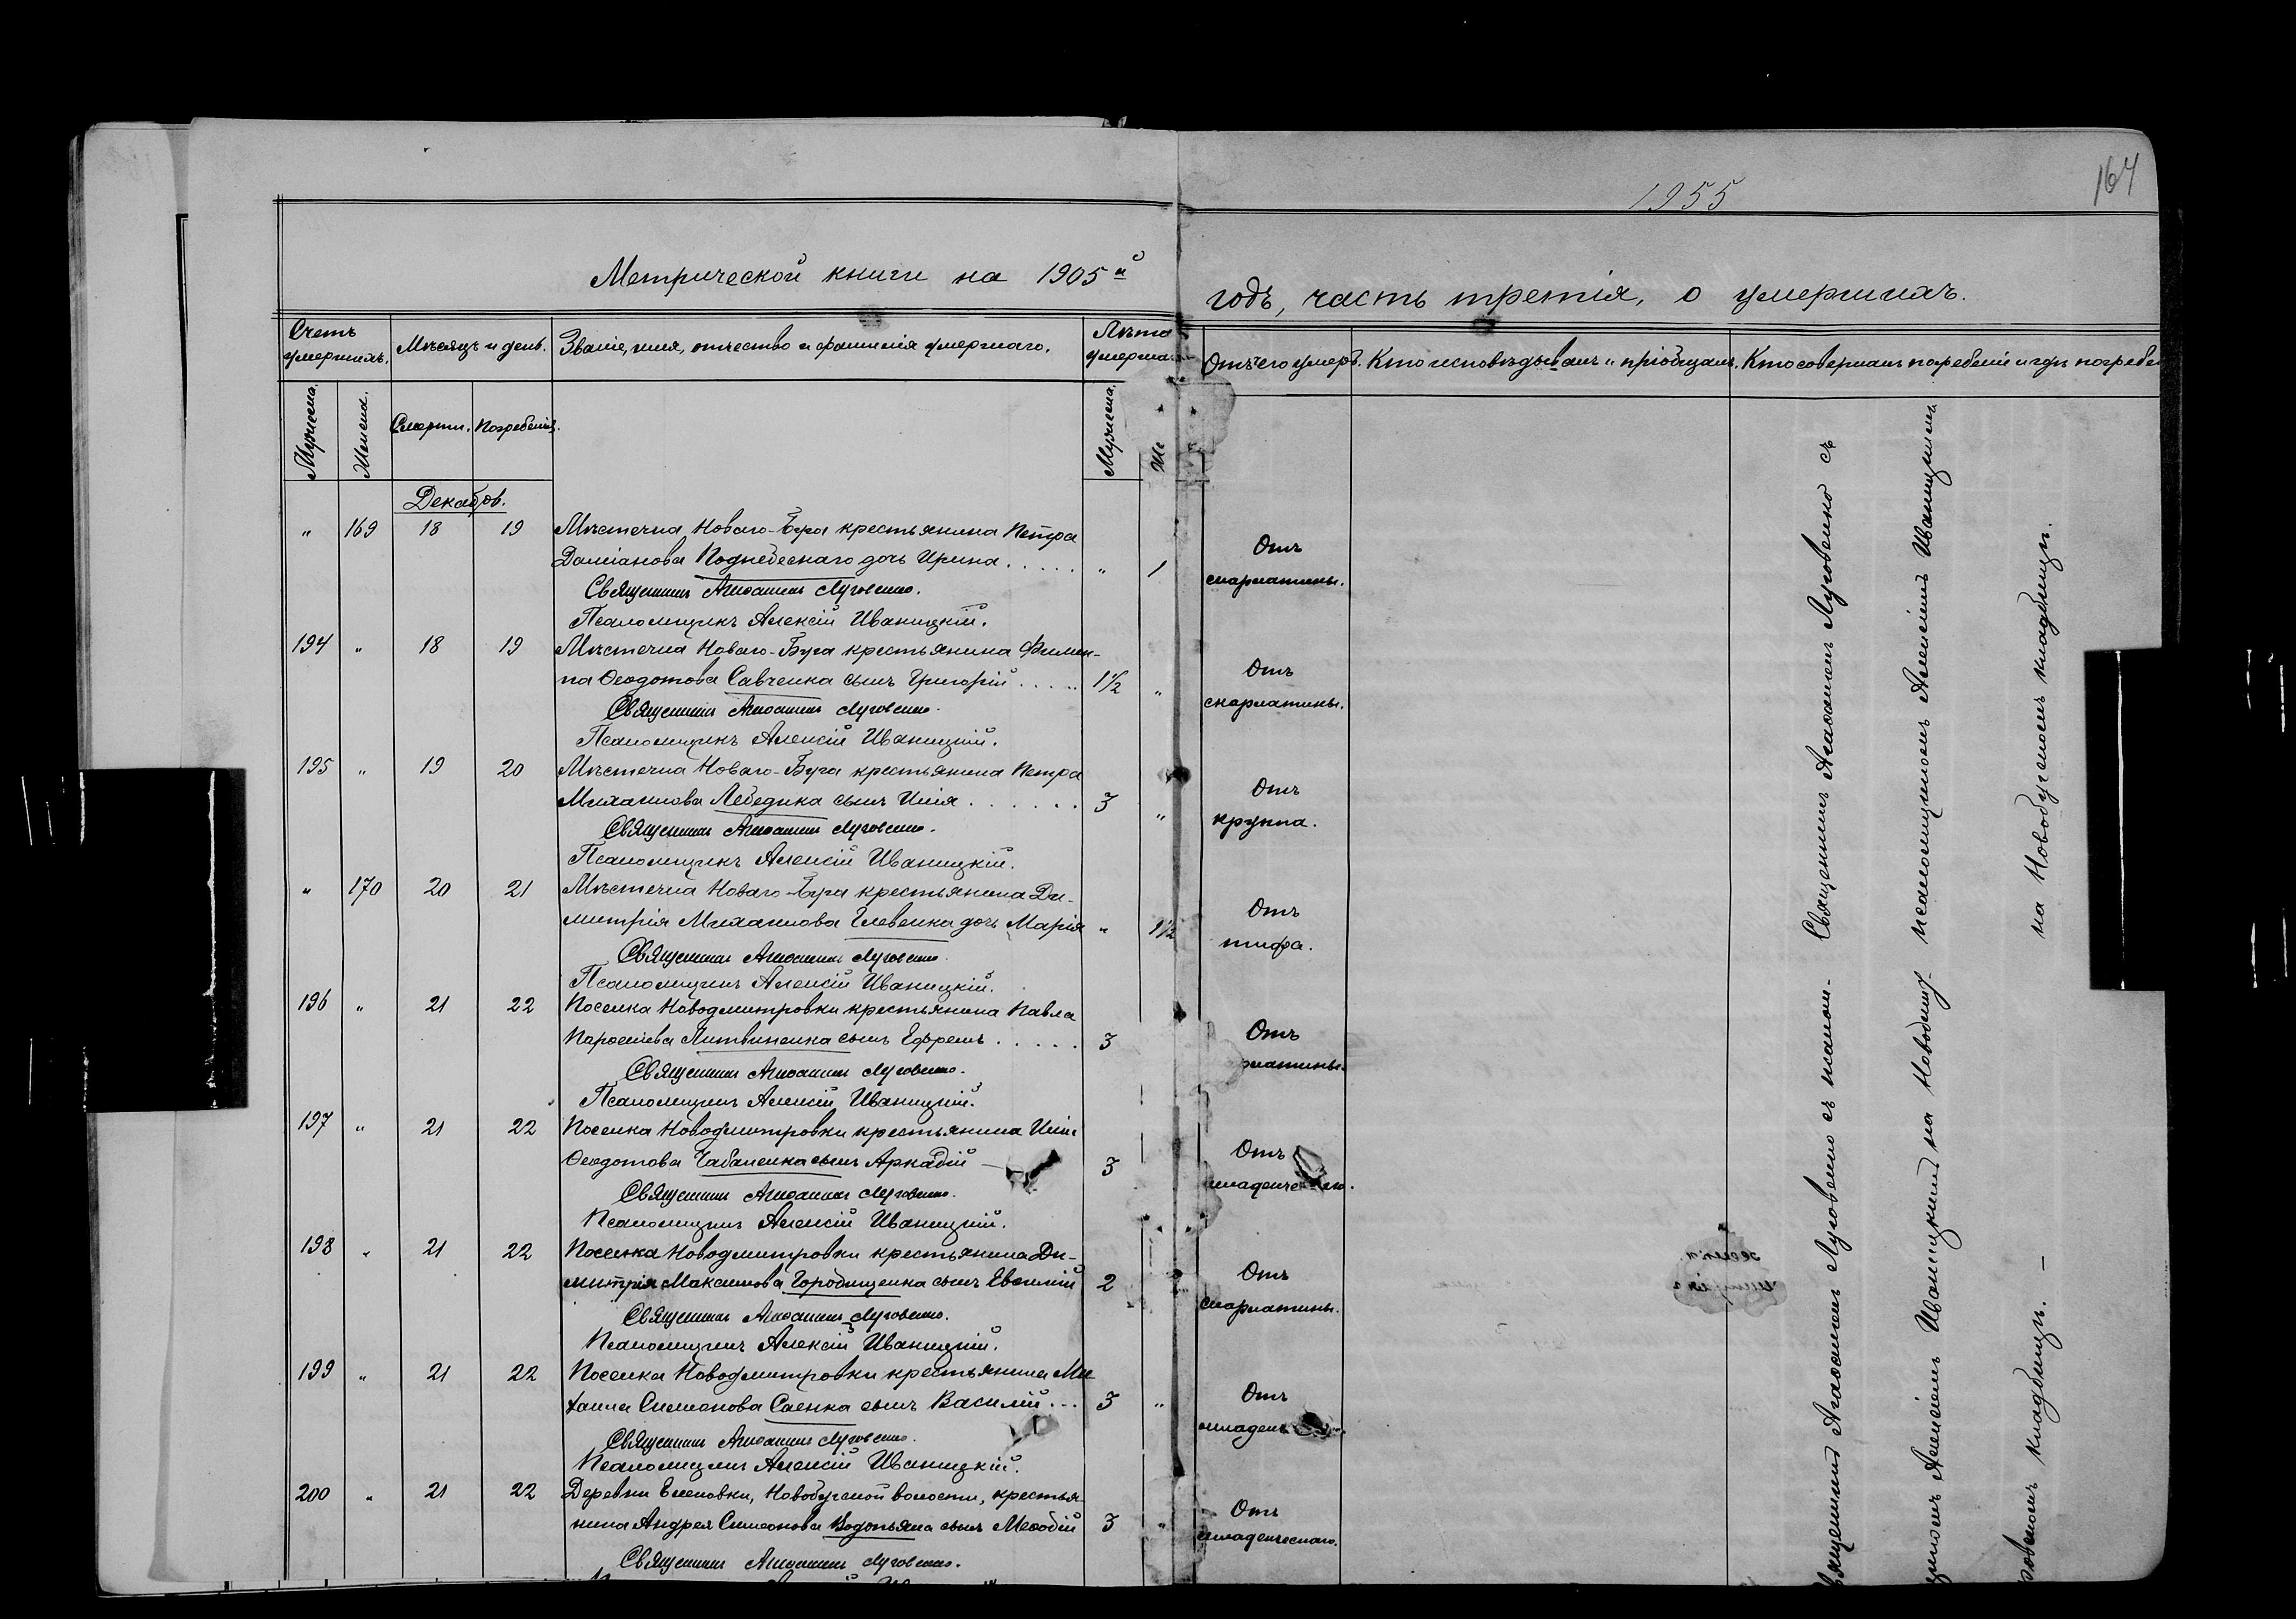 1955
164
Метрической книги на 1905й
годъ, часть третія, о умершихъ.
Счетъ умершихъ.
Мѣсяцъ и день.
Званіе, имя, отчество и фамилія умершаго.
Лѣта
Отъ чего умеръ.
Кто исповѣдывалъ и пріобщалъ.
Кто совершалъ погребеніе и гдѣ
Мужеска.
Женска.
Смерти.
Погребенія.
Мужеска.
Декабрь.
" 169 18 19 Мѣстечка Новаго-Буга крестьянина Петра
Даміанова Поднебеснаго дочь Ирина..... " 1 Отъ скарлатины.
Священникъ Агаѳаниелъ Луговенко.
Псаломщикъ Алексій Иваницкій.
194 " 18 19 Мѣстечка Новаго-Буга крестьянина Филип-
па Ѳеодотова Савченка сынъ Григорій..... 1½ " Отъ скарлатины.
Священникъ Луговенко.
Псаломщикъ Алексій Иваницкій.
195 " 19 20 Мѣстечка Новаго-Буга крестьянина Петра
Михаилова Лебедика сынъ Илія...... 3 " Отъ крупа.
Священникъ Луговенко.
Псаломщикъ Алексій Иваницкій.
" 170 20 21 Мѣстечка Новаго-Буга крестьянина Ди-
митрія Михаилова дочь Марія " 1½ Отъ тифа.
Священникъ Луговенко.
Псаломщикъ Алексій Иваницкій.
196 " 21 22 Поселка Новодмитровки крестьянина Павла
Литвиненка сынъ Ефремъ..... 3 Отъ
Священникъ Луговенко.
Псаломщикъ Алексій Иваницкій.
197 " 21 22 Поселка Новодмитровки крестьянина Иліи
Ѳеодотова Чабаненка сынъ Аркадій — 3 Отъ
Священникъ Луговенко.
Псаломщикъ Алексій Иваницкій.
198 " 21 22 Поселка Новодмитровки крестьянина Ди-
митрія Максимова Городищенка сынъ Евѳимій 2 Отъ скарлатины.
Священникъ Луговенко.
Псаломщикъ Алексій Иваницкій.
199 " 21 22 Поселка Новодмитровки крестьянина Ми
хаила Симеонова Саенка сынъ Василій... 3 " Отъ
Священникъ Луговенко.
Псаломщикъ Алексій Иваницкій.
200 " 21 22 Деревни Еленовки, Новобугской волости, крестья-
нина Андрея Симеонова Водопьяна сынъ Меѳодій 3 " Отъ младенческаго.
Священникъ Луговенко.
Священникъ Луговенко съ
псаломщикомъ Алексіемъ Иваницкимъ
на Новобугскомъ кладбищѣ.
Луговенко съ псалом-
Алексіемъ Иваницкимъ на Новодмит-
кладбищѣ. —